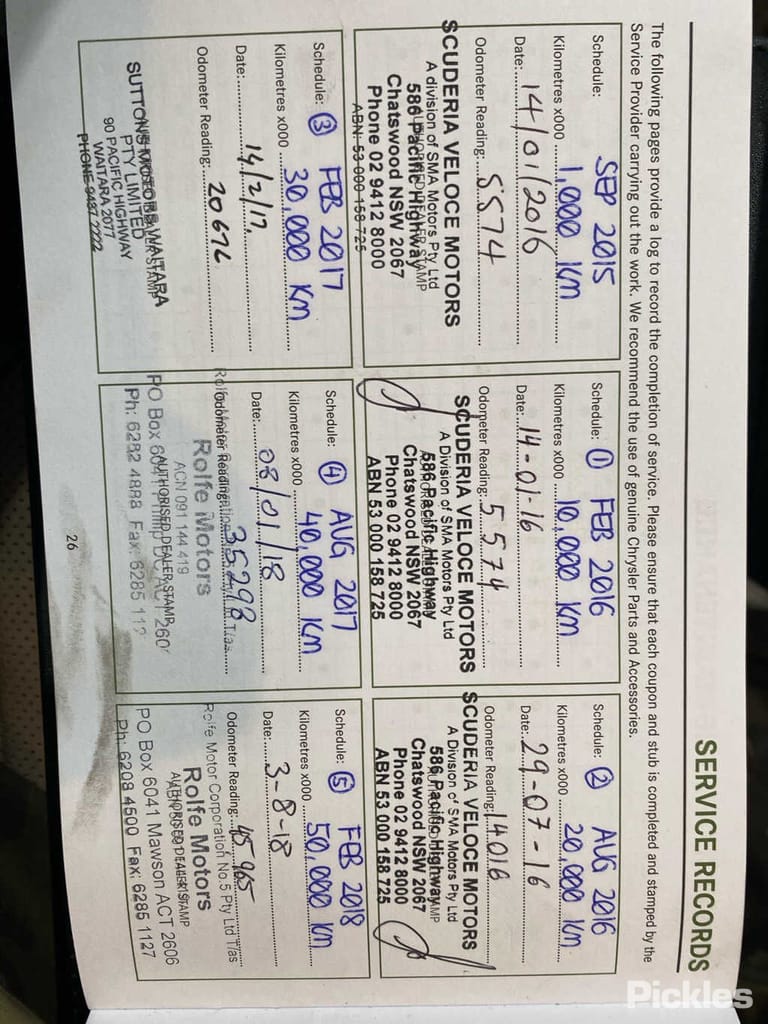 SERVICE RECORDS
The following pages provide a log to record the completion of service. Please ensure that each coupon and stub is completed and stamped by the
Service Provider carrying out the work. We recommend the use of genuine Chrysler Parts and Accessories.
Schedule: SEP 2015
Kilometres x000 1,000 KM
Date: 14/01/2016
Odometer Reading: 5574
SCUDERIA VELOCE MOTORS
A division of SMA Motors Pty Ltd
586 Pacific Highway
Chatswood NSW 2067
Phone 02 9412 8000
ABN: 53 000 158 725
Schedule: ① FEB 2016
Kilometres x000 10,000 KM
Date: 14-01-16
Odometer Reading: 5574
SCUDERIA VELOCE MOTORS
A Division of SMA Motors Pty Ltd
586 Pacific Highway
Chatswood NSW 2067
Phone 02 9412 8000
ABN 53 000 158 725
Schedule: ② AUG 2016
Kilometres x000 20,000 KM
Date: 29-07-16
Odometer Reading: 14016
SCUDERIA VELOCE MOTORS
A Division of SMA Motors Pty Ltd
586 Pacific Highway
Chatswood NSW 2067
Phone 02 9412 8000
ABN 53 000 158 725
Schedule: ③ FEB 2017
Kilometres x000 30,000 KM
Date: 14/2/17.
Odometer Reading: 20676
SUTTONS MOTORS WAITARA
PTY LIMITED
90 PACIFIC HIGHWAY
WAITARA 2077
PHONE 9487 2222
Schedule: ④ AUG 2017
Kilometres x000 40,000 KM
Date: 08/01/18
Odometer Reading: 35298
Rolfe Motors
ACN 091 144 419
AUTHORISED DEALER STAMP
PO Box 6041 Phillip ACT 260
Ph: 6282 4888 Fax: 6285 112
Schedule: ⑤ FEB 2018
Kilometres x000 50,000 KM
Date: 3-8-18
Odometer Reading: 45965
Rolfe Motor Corporation No.5 Pty Ltd T/as
Rolfe Motors
AUTHORISED DEALER STAMP
PO Box 6041 Mawson ACT 2606
Ph: 6208 4500 Fax: 6285 1127
26
Pickles